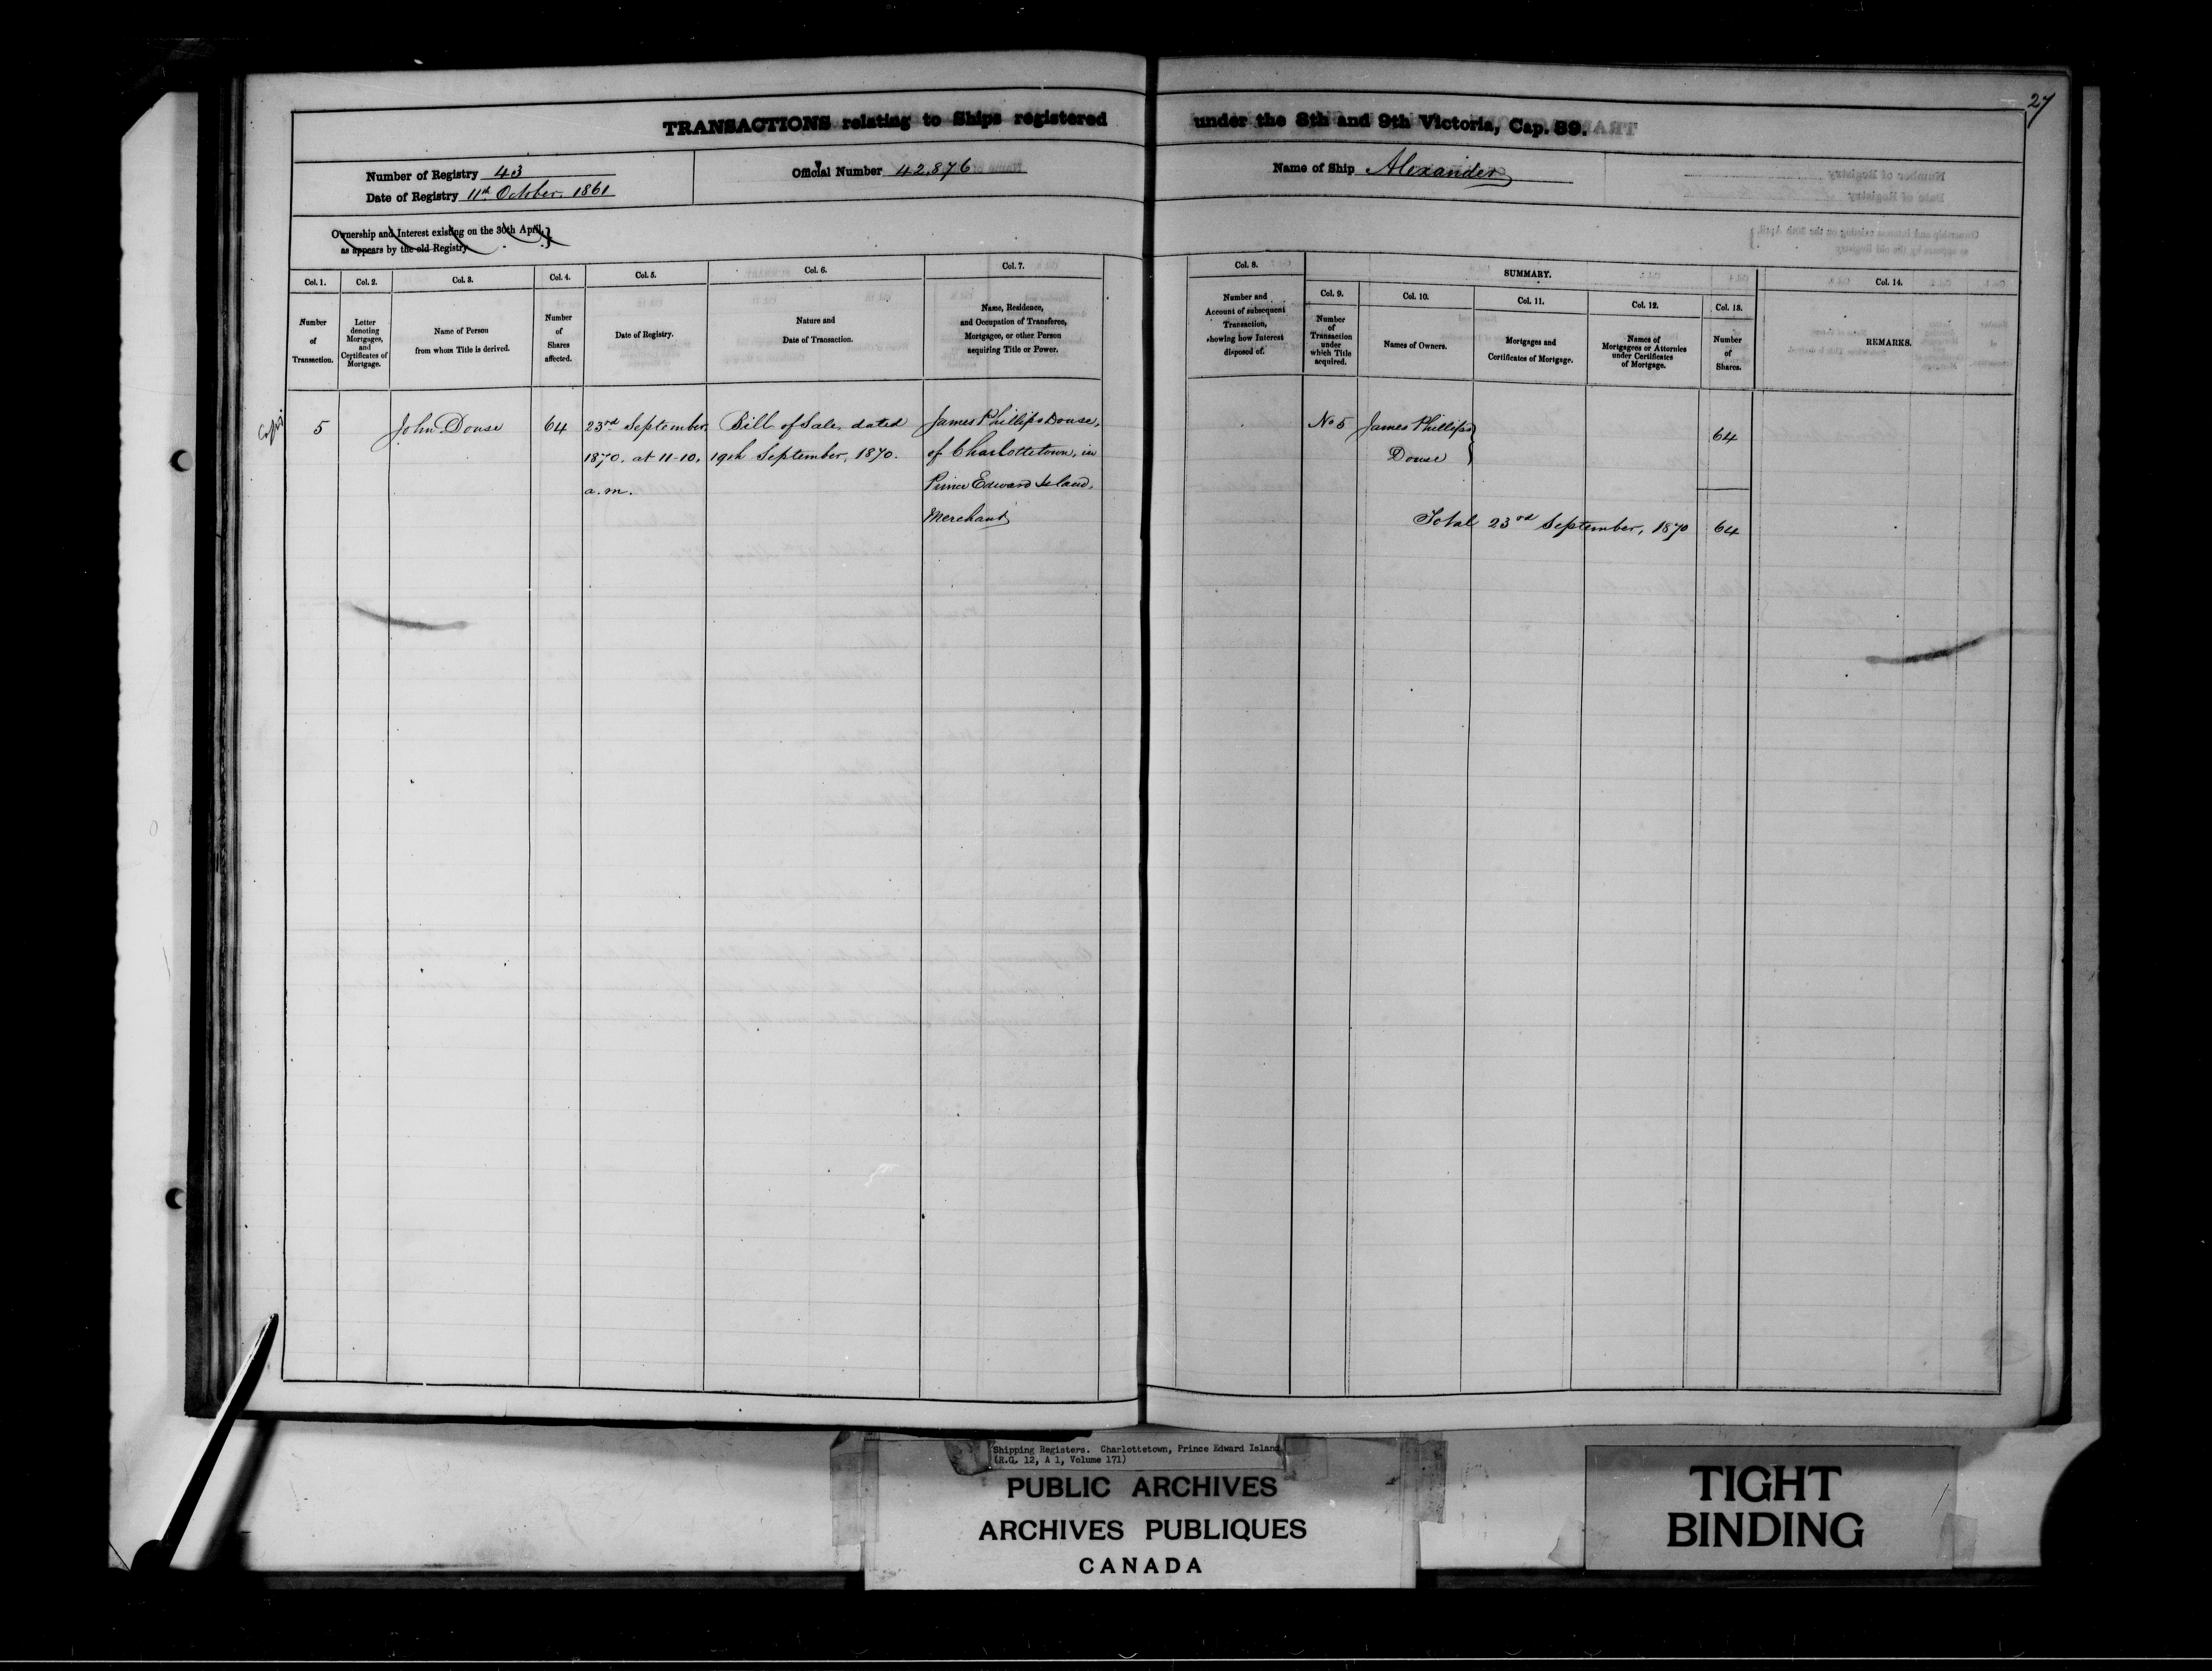 27
TRANSACTIONS relating to Ships registered under the 8th and 9th Victoria, Cap. 89.
Number of Registry 43
Date of Registry 11th October, 1861
Official Number 42,876
Name of Ship Alexander
Ownership and Interest existing on the 30th April,
as appears by the old Registry
Col. 1.
Number
of
Transaction.
Col. 2.
Letter
denoting
Mortgages,
and
Certificates of
Mortgage.
Col. 3.
Name of Person
from whom Title is derived.
Col. 4.
Number
of
Shares
affected.
Col. 5.
Date of Registry.
Col. 6.
Nature and
Date of Transaction.
Col. 7.
Name, Residence,
and Occupation of Transferee,
Mortgagee, or other Person
acquiring Title or Power.
Col. 8.
Number and
Account of subsequent
Transaction,
showing how Interest
disposed of.
SUMMARY.
Col. 9.
Number
of
Transaction
under
which Title
acquired.
Col. 10.
Names of Owners.
Col. 11.
Mortgages and
Certificates of Mortgage.
Col. 12.
Names of
Mortgagees or Attornies
under Certificates
of Mortgage.
Col. 13.
Number
of
Shares.
Col. 14.
REMARKS.
5
John Douse
64
23rd September,
1870, at 11-10,
a.m.
Bill of Sale, dated
19th September, 1870.
James Phillips Douse,
of Charlottetown, in
Prince Edward Island,
Merchant
No 5
James Phillips
Douse
64
Total 23rd September, 1870 64
Shipping Registers. Charlottetown, Prince Edward Island
(R.G. 12, A 1, Volume 171)
PUBLIC ARCHIVES
ARCHIVES PUBLIQUES
CANADA
TIGHT
BINDING